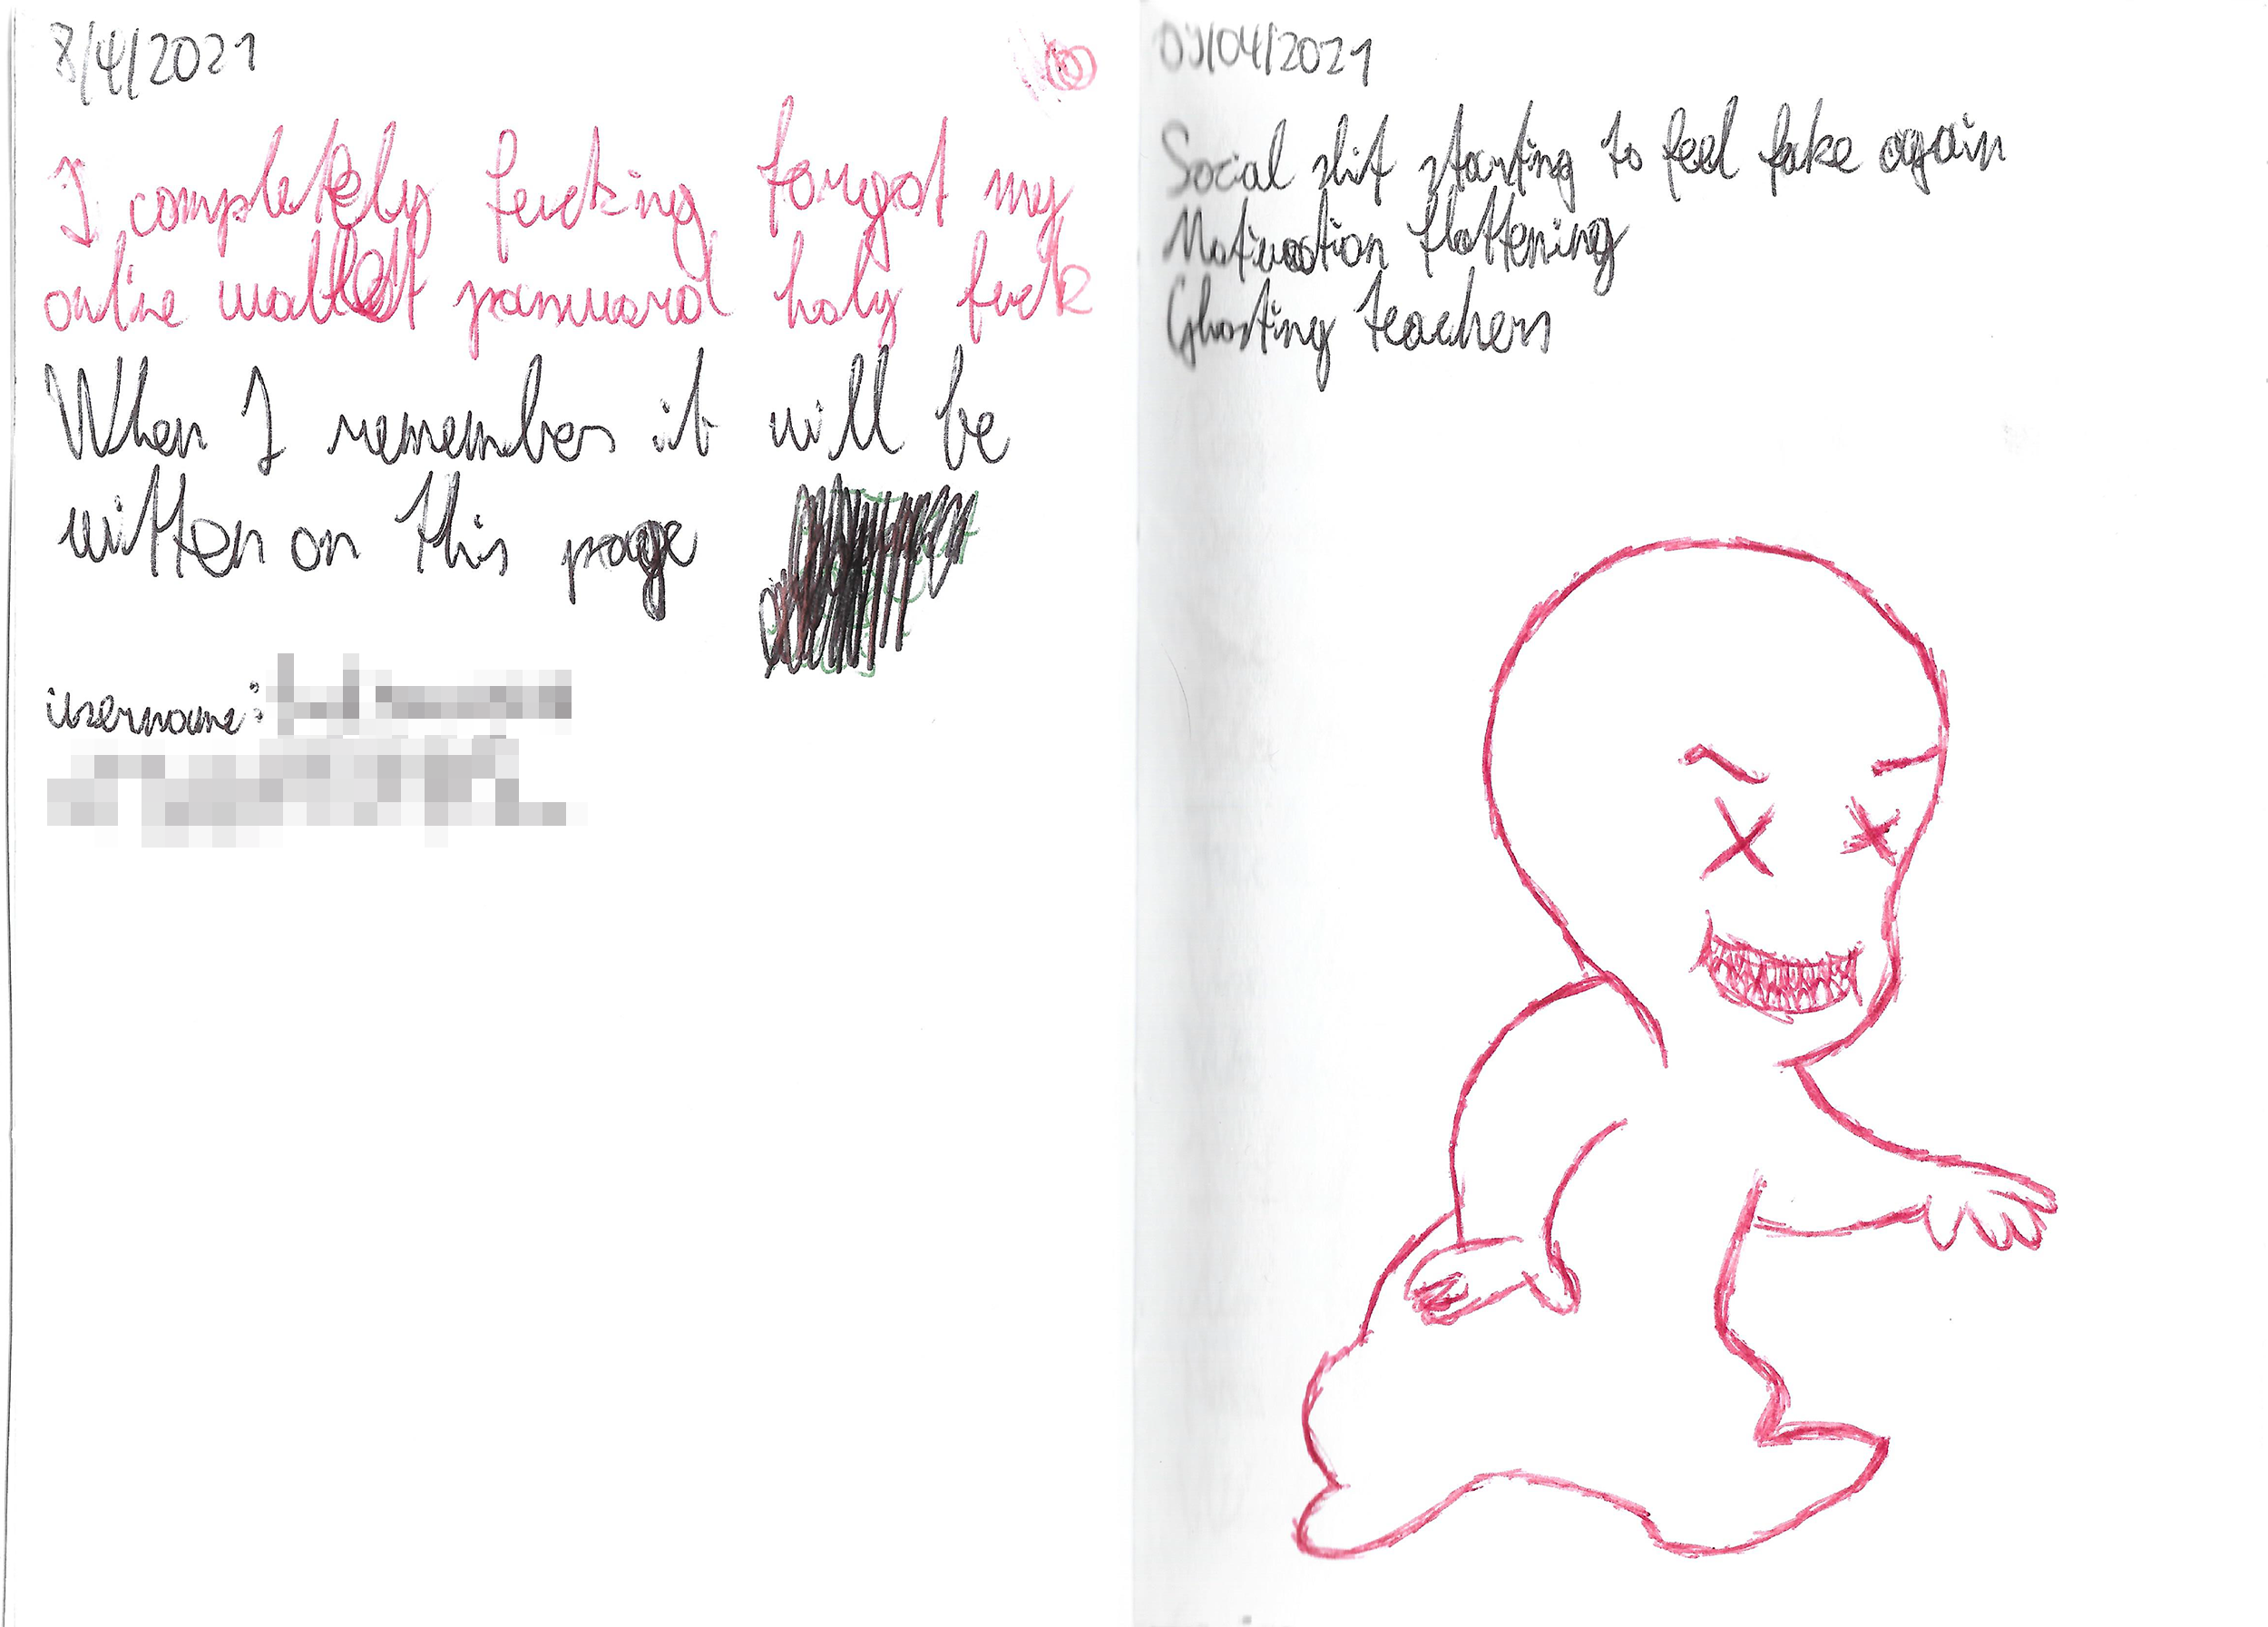 8/4/2021
I completely fucking forgot my
online wallet password holy fuck
When I remember it will be
written on this page
username:
09/04/2021
Social shit starting to feel fake again
Motivation flattening
Ghosting teachers